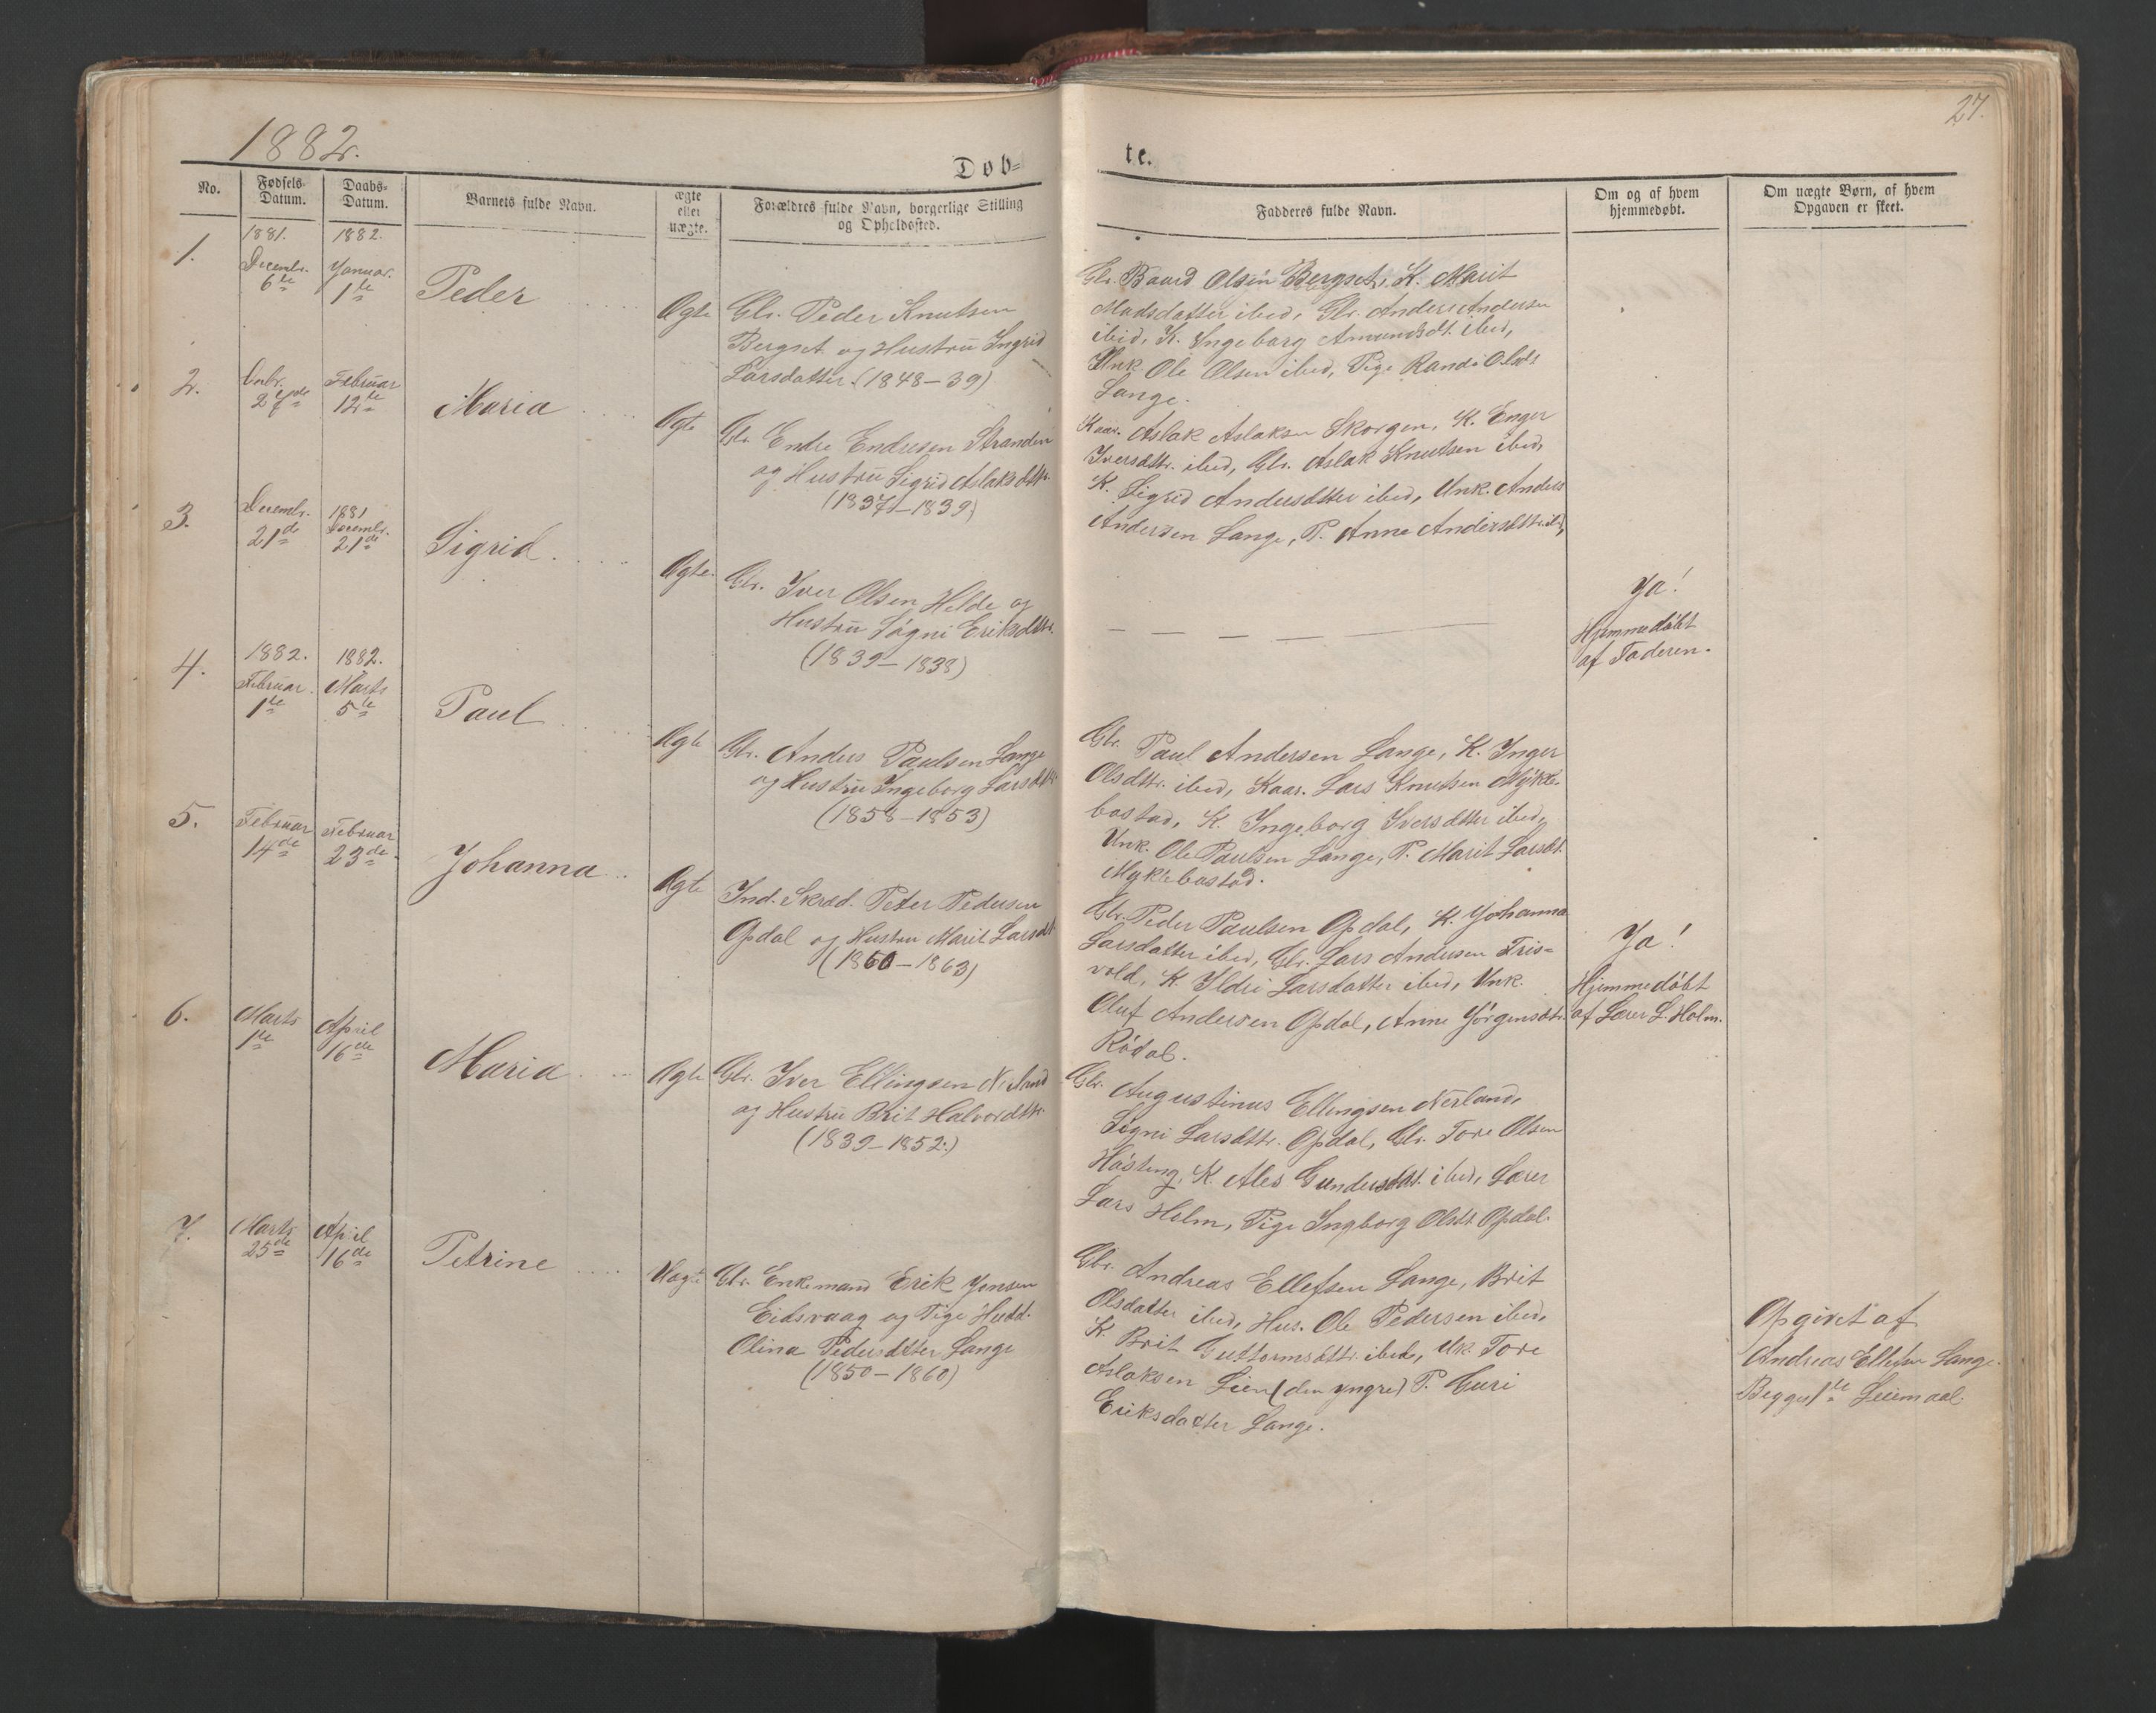 27.
1882.
Døb=
te.
No.
Fødsels-
Datum.
Daabs-
Datum.
Barnets fulde Navn.
ægte
eller
uægte.
Forældres fulde Navn, borgerlige Stilling
og Opholdssted.
Fadderes fulde Navn.
Om og af hvem
hjemmedøbt.
Om uægte Børn, af hvem
Opgaven er skeet.
1.
1881.
Decembr.
6te
1882.
Januar.
1te
Peder
Ægte
Gbr. Peder Knutsen
Bergset og Hustru Ingrid
Larsdatter. (1848-39)
Gbr. Baard Olsen Bergset, K. Marit
Madsdatter ibid, Gbr. Anders Andersen
ibid, K. Ingeborg Amundsdt. ibid,
Unk. Ole Olsen ibid, Pige Randi Olsdt
Lange.
2.
27de
Februar
12te
Maria
Ægte
Gbr Endre Endresen Stranden
og Hustru Sigrid Aslaksdttr.
(1837-1839)
Kaar. Aslak Aslaksen Skorgen, K. Enger
Iversdttr. ibid, Gbr. Aslak Knutsen ibid,
K. Sigrid Andersdtter ibid, Unk. Anders
Andersen Lange, P. Anne Andersdttr. ibid,
3.
Decembr.
21de
1881
Decembr.
21de
Sigrid.
Ægte.
Gbr. Iver Olsen Helde og
Hustru Signi Eriksdttr.
(1839-1838)
Ja!
Hjemmedøbt
af Faderen.
4.
1882.
Februar.
1te
1882.
Marts
5te
Paul
Ægte
Gbr. Anders Paulsen Lange
og Hustru Ingeborg Larsdttr.
(1858-1853)
Gbr. Paul Andersen Lange, K. Inger
Olsdttr. ibid, Kaar. Lars Knutsen Mykle-
bostad, K. Ingeborg Iversdtter ibid,
Unk. Ole Paulsen Lange, P. Marit Larsdt.
Myklebostad.
5.
Februar
14de
Februar
23de
Johanna
Ægte
Ind. Skræd. Peter Pedersen
Opdal og Hustru Marit Larsdt
(1860-1863)
Gbr. Peder Paulsen Opdal, K. Johanna
Larsdatter ibid, Gbr. Lars Andersen Tris=
vold, K. Ildri Larsdatter ibid, Unk.
Oluf Andersen Opdal, Anne Jørgensdtr.
Rødal.
Ja!
Hjemmedøbt
af Lærer L. Holm.
6.
Marts
1te
April
16de
Maria
Ægte
Gbr. Iver Ellingsen Nerland
og Hustru Brit Halvordttr.
(1839-1852.)
Gbr. Augustinus Ellingsen Nerland,
Signi Larsdttr. Opdal, Gbr. Tore Olsen
K. Ales Gundersdt. ibid, Lærer
Lars Holm, Pige Ingborg Olsdt Opdal.
7.
Marts
25de
April
16de
Petrine
Uægte
Gbr. Enkemand Erik Jonsen
Eidsvaag og Pige
Olina Pedersdtter Lange
(1850-1860)
Gbr. Andreas Ellefsen Lange, Brit
Olsdatter ibid, Hus. Ole Pedersen ibid,
K. Brit Guttormsdttr. ibid, Uk. Tore
Aslaksen Lien (den yngre) P. Guri
Eriksdatter Lange.
Opgivet af
Andreas Ellefsen Lange.
Begges 1te Leiemaal.